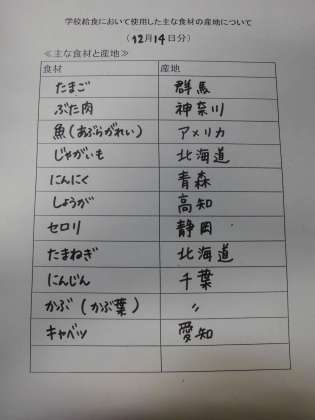 学校給食において使用した主な食材の産地について
(12月14日分)
≪主な食材と産地≫
食材 産地
たまご 群馬
ぶた肉 神奈川
魚(あぶらがれい) アメリカ
じゃがいも 北海道
にんにく 青森
しょうが 高知
セロリ 静岡
たまねぎ 北海道
にんじん 千葉
かぶ(かぶ葉) 〃
キャベツ 愛知